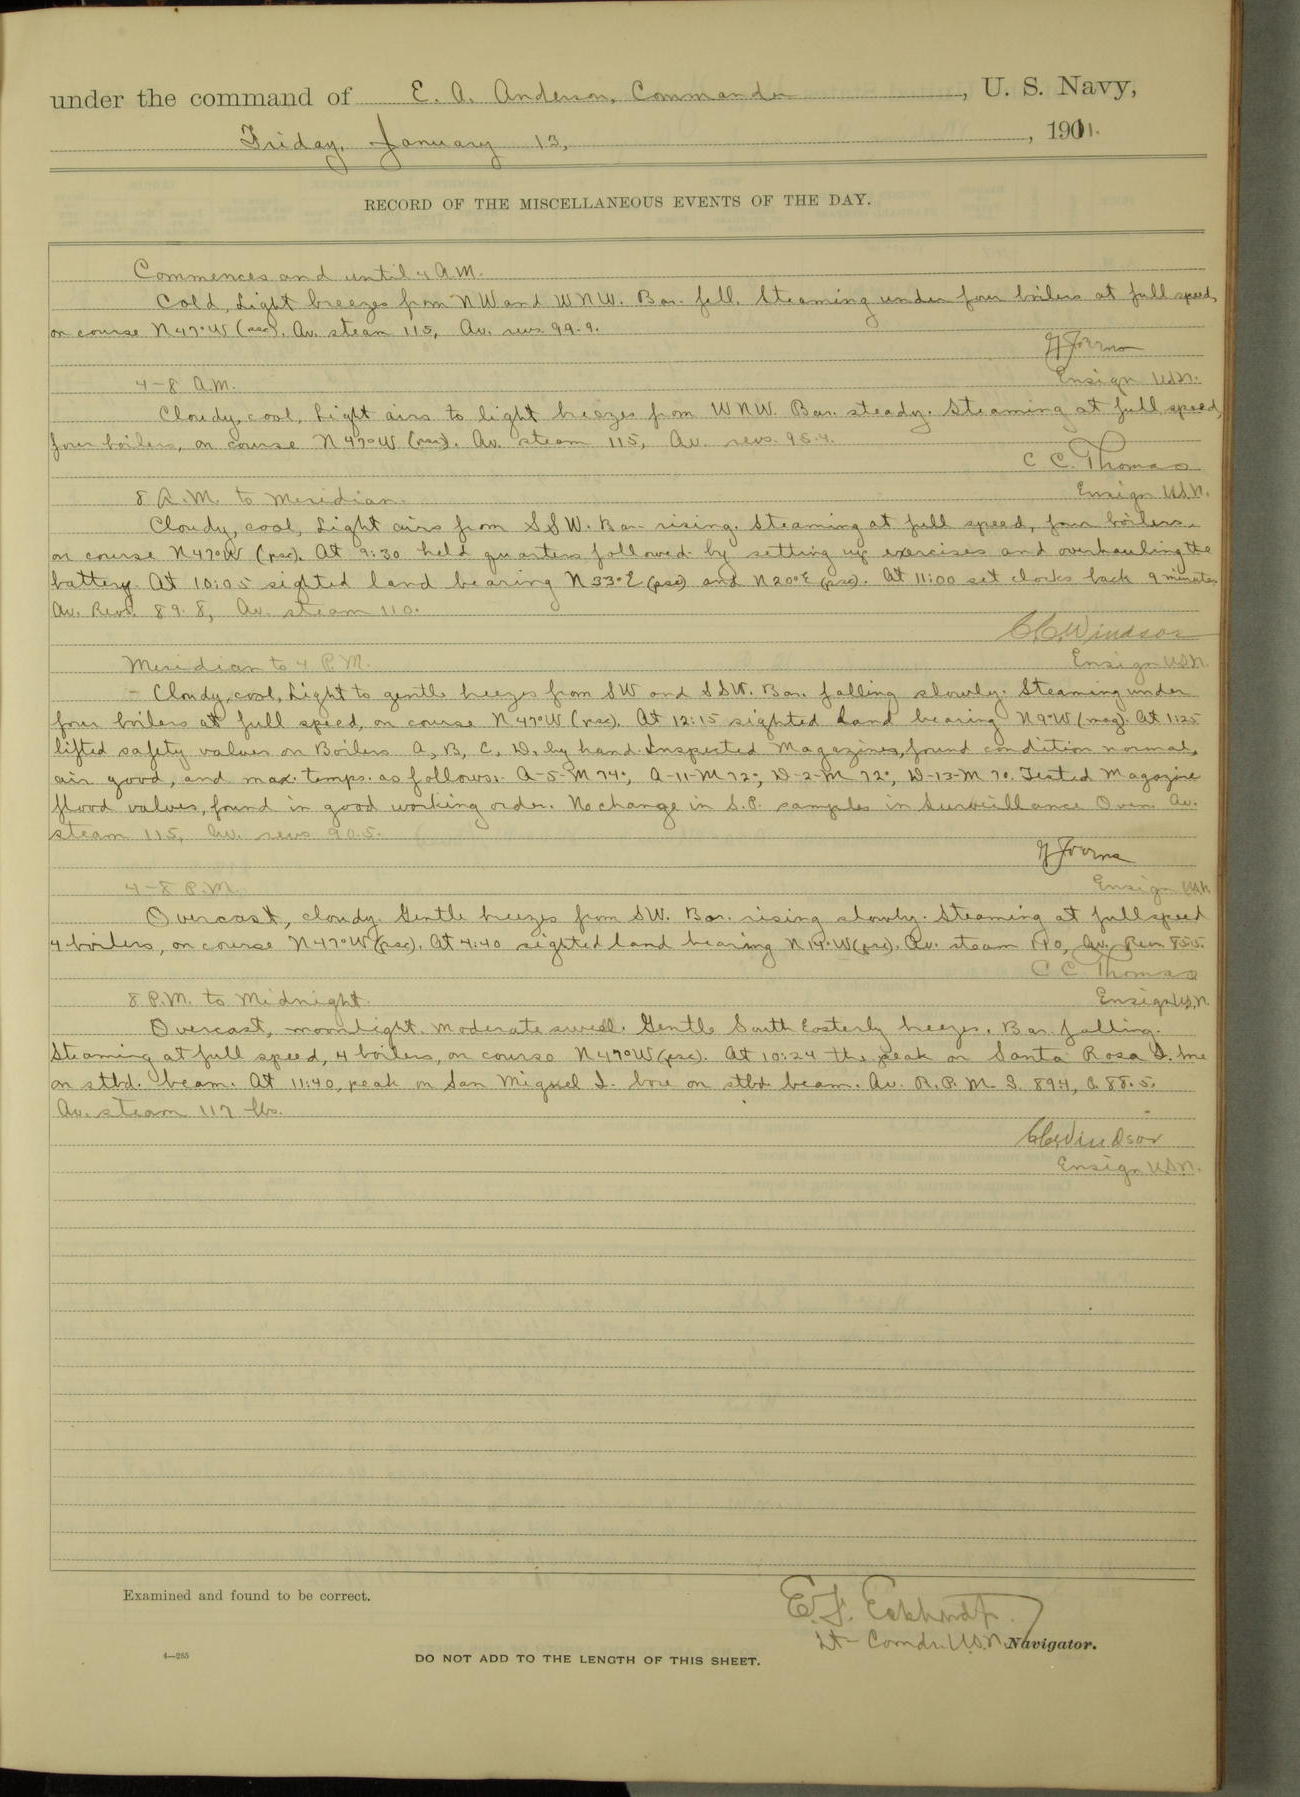 under the command of E. A. Anderson, Commander, U. S. Navy,
Friday, January 13, 1911.
RECORD OF THE MISCELLANEOUS EVENTS OF THE DAY.
Commences and until 4 A.M.
Cold, Light breezes from NW and WNW. Bar. fell. Steaming under four boilers at full speed,
on course N 47° W (psc). Av. steam 115, Av. revs 99.9.
Ensign USN.
4-8 A.M.
Cloudy, cool, Light airs to light breezes from WNW. Bar. steady. Steaming at full speed,
four boilers, on course N 47° W (psc). Av. steam 115, Av. revs. 95.4.
C. C. Thomas
Ensign USN.
8 A.M. to Meridian.
Cloudy, cool, Light airs from SSW. Bar rising. Steaming at full speed, four boilers
on course N 47° W (psc). At 9:30 held quarters followed by setting up exercises and overhauling the
battery. At 10:05 sighted land bearing N 33° E (psc) and N 20° E (psc). At 11:00 set clocks back 9 minutes
Av. Revs. 89.8, Av. steam 110.
C. C. Windsor
Ensign USN.
Meridian to 4 P.M.
- Cloudy, cool, Light to gentle breezes from SW and SSW. Bar. falling slowly. Steaming under
four boilers at full speed, on course N 47° W (psc). At 12:15 sighted land bearing N 9° W (mag). At 1:25
lifted safety valves on Boilers A, B, C, D, by hand. Inspected Magazines, found condition normal,
air good, and max. temps. as follows:- A-5-M 74°, A-11-M 72°, D-2-M 72°, D-13-M 70. Tested Magazine
flood valves, found in good working order. No change in S.P. samples in Surveillance Oven. Av.
steam 115, Av. revs 90.5.
Ensign USN
4-8 P.M.
Overcast, cloudy. Gentle breezes from SW. Bar. rising slowly. Steaming at full speed
4 boilers, on course N 47° W (psc). At 4:40 sighted land bearing N 14° W (psc). Av. steam 110, Av. Rev 85.5.
C C Thomas
Ensign U.S.N.
8 P.M. to Midnight.
Overcast, moonlight. Moderate swell. Gentle South Easterly breezes. Bar falling.
Steaming at full speed, 4 boilers, on course N 47° W (psc). At 10:24 the peak on Santa Rosa I. bore
on stbd. beam. At 11:40, peak on San Miguel I. bore on stbd beam. Av. R.P.M. S. 89.4, P. 88.5.
Av. steam 117 lbs.
C C Windsor
Ensign USN.
Examined and found to be correct.
E. F. Eckhardt.
Lt-Comdr. U.S.N. Navigator.
4—265
DO NOT ADD TO THE LENGTH OF THIS SHEET.